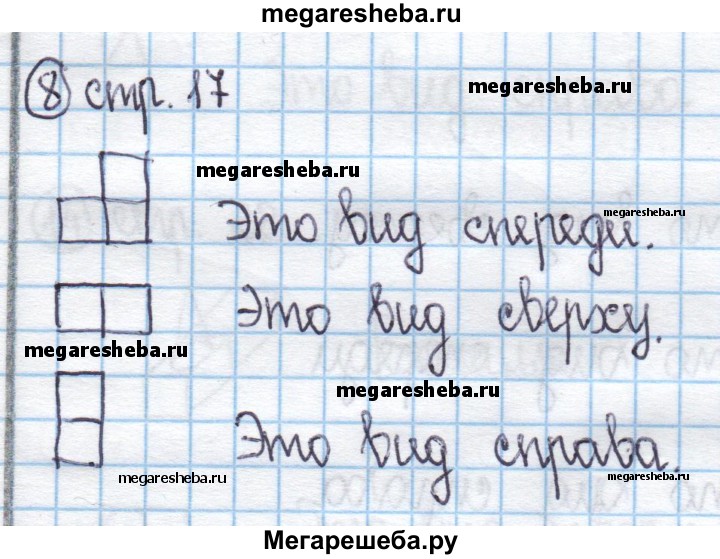 megaresheba.ru
8 стр. 17
megaresheba.ru
megaresheba.ru
megaresheba.ru
Это вид спереди.
Это вид сверху.
megaresheba.ru
megaresheba.ru
Это вид справа.
megaresheba.ru
megaresheba.ru
Мегарешеба.ру